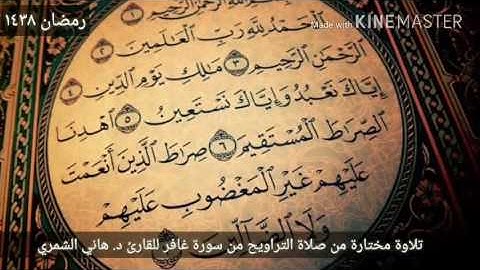 رمضان ١٤٣٨
Made with KINEMASTER
بِسْمِ اللَّهِ الرَّحْمَٰنِ الرَّحِيمِ ١
الْحَمْدُ لِلَّهِ رَبِّ الْعَالَمِينَ ٢
الرَّحْمَٰنِ الرَّحِيمِ ٣ مَالِكِ يَوْمِ الدِّينِ ٤
إِيَّاكَ نَعْبُدُ وَإِيَّاكَ نَسْتَعِينُ ٥ اهْدِنَا
الصِّرَاطَ الْمُسْتَقِيمَ ٦ صِرَاطَ الَّذِينَ أَنْعَمْتَ
عَلَيْهِمْ غَيْرِ الْمَغْضُوبِ عَلَيْهِمْ
وَلَا الضَّالِّينَ
تلاوة مختارة من صلاة التراويح من سورة غافر للقارئ د. هاني الشمري